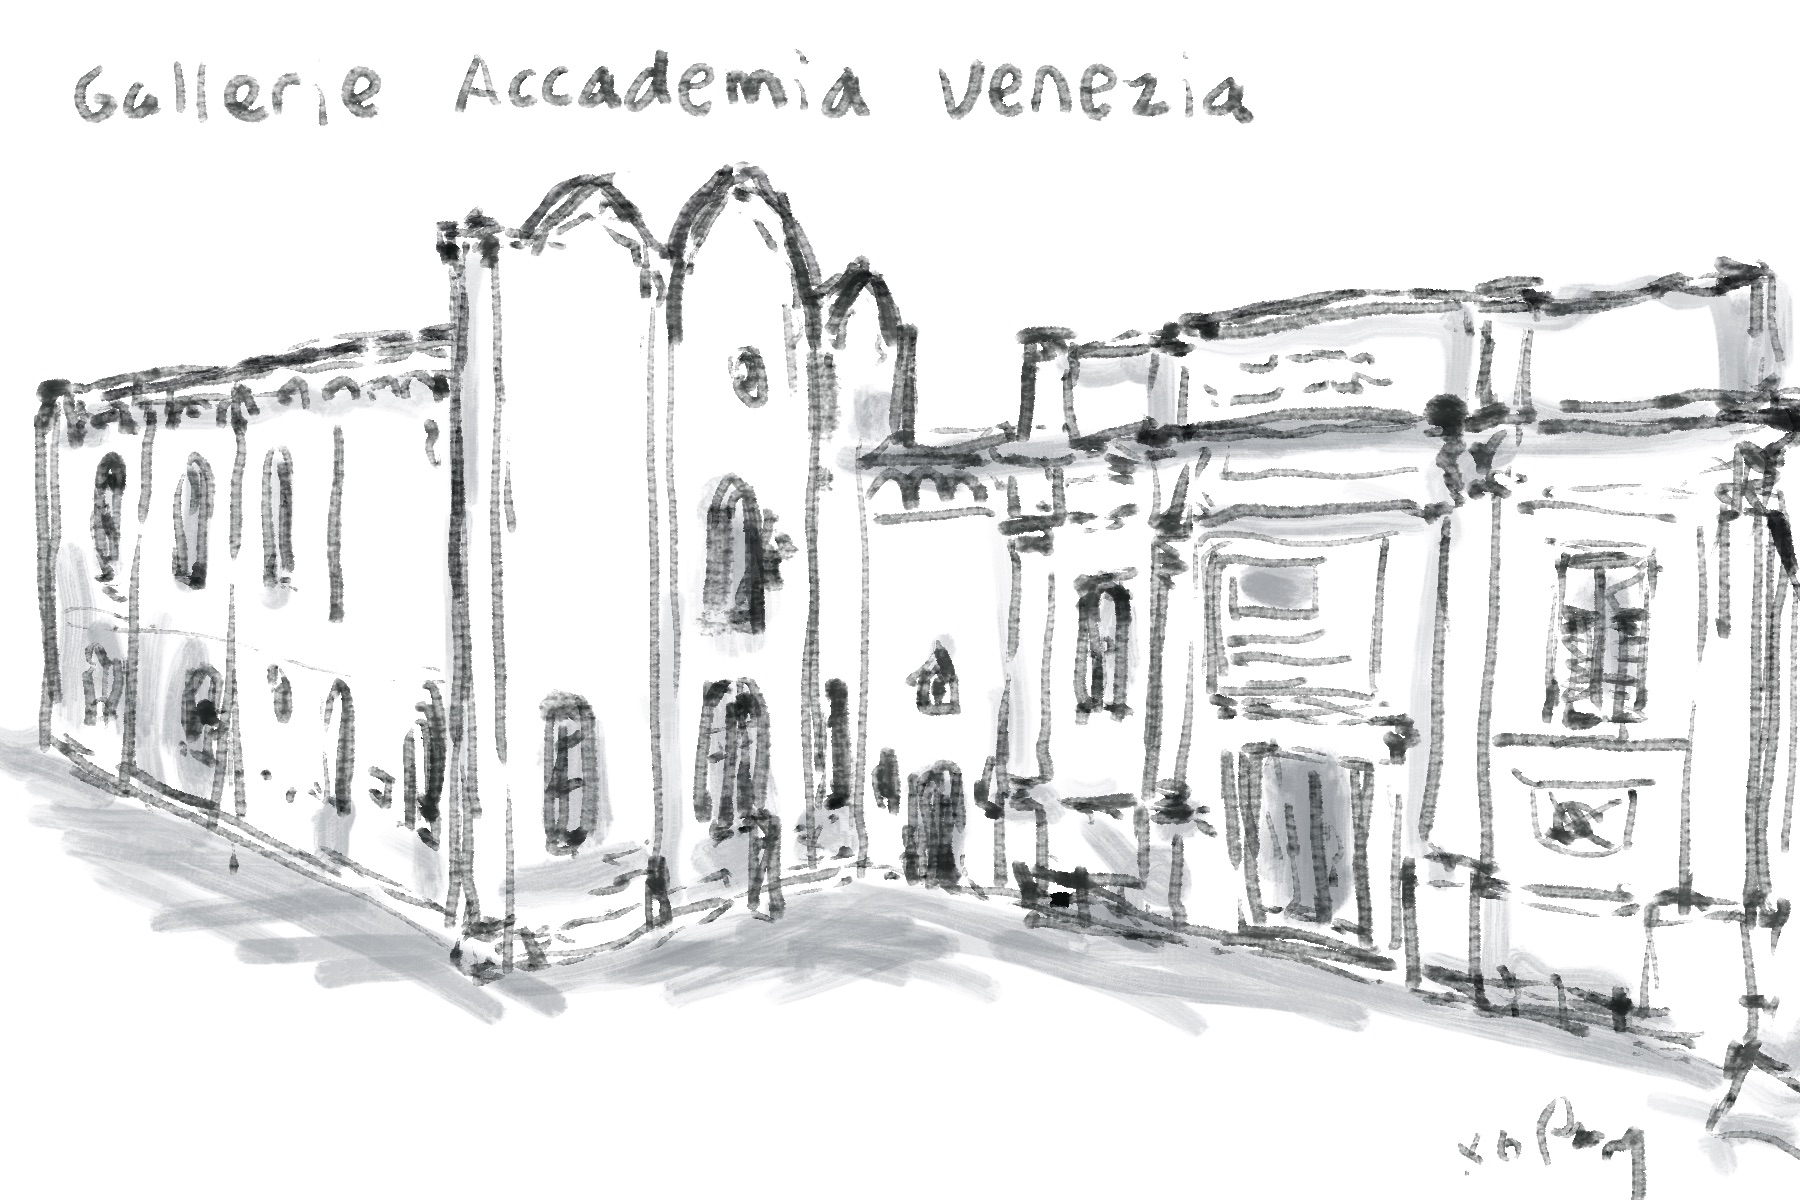 Gallerie Accademia Venezia
xo